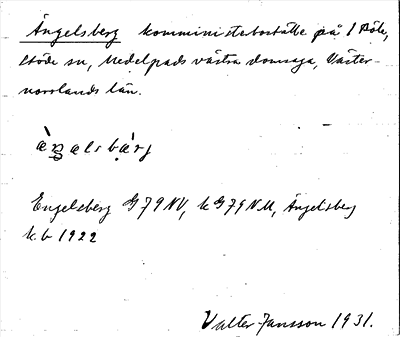 Ängelsberg komministerboställe på 1 Böle,
Stöde sn, Medelpads västra domsaga, Väster-
norrlands län.
Engelsberg G79NV, k G79NV, Ängelsberg
k.b 1922
Valter Jansson 1931.